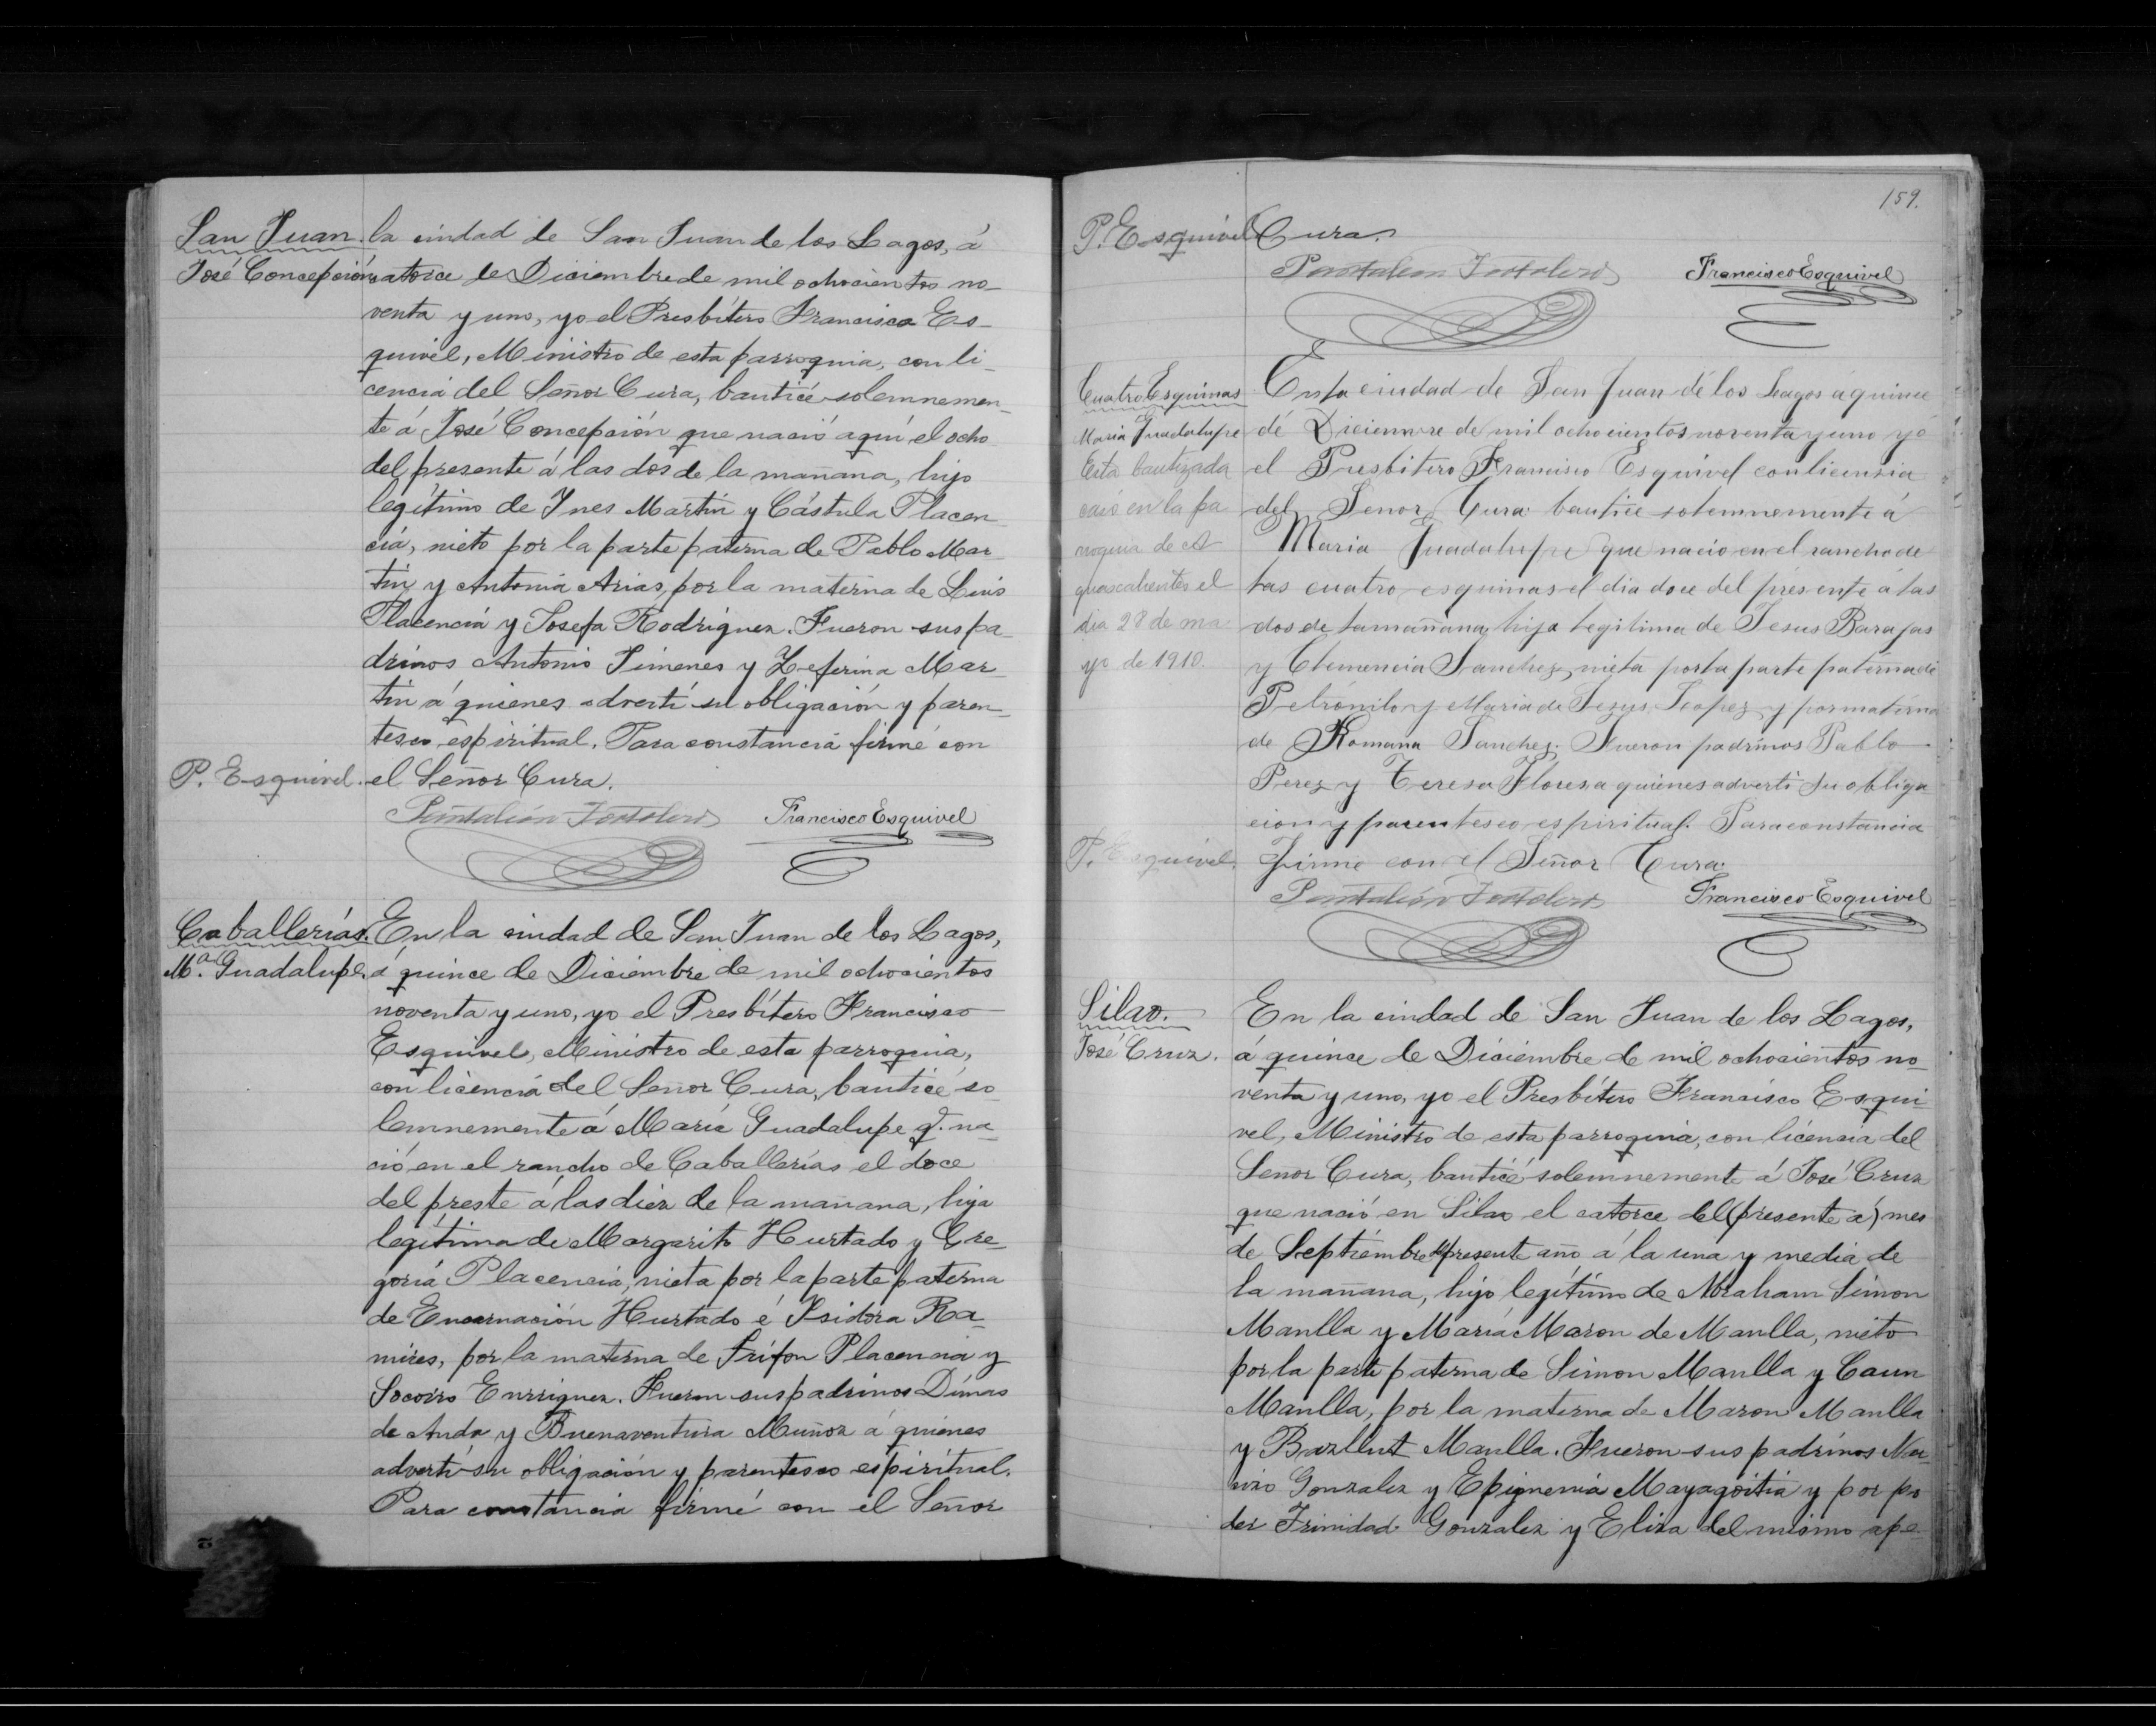 San Juan. la ciudad de San Juan de los Lagos, á
José Concepción catorce de Diciembre de mil ochocientos no-
venta y uno, yo el Presbítero Francisco Es-
quivel, Ministro de esta parroquia, con li-
cencia del Señor Cura, bauticé solemnemen-
te á José Concepción que nació aquí el ocho
del presente á las dos de la mañana, hijo
legítimo de Ynes Martín y Cástula Placen-
cia, nieto por la parte paterna de Pablo Mar-
tín y Antonia Arias, por la materna de Luis
Placencia y Josefa Rodríguez. Fueron sus pa-
drinos Antonio Jimenes y Zeferina Mar-
tín á quienes advertí su obligación y paren-
tesco espiritual. Para constancia firmé con
P. Esquivel. el Señor Cura.
Pantaleón Tortolero Francisco Esquivel
Caballerías. En la ciudad de San Juan de los Lagos,
Ma. Guadalupe. á quince de Diciembre de mil ochocientos
noventa y uno, yo el Presbítero Francisco
Esquivel, Ministro de esta parroquia,
con licencia del Señor Cura, bauticé so-
lemnemente á María Guadalupe q. na-
ció en el rancho de Caballerías el doce
del preste á las diez de la mañana, hija
legítima de Margarito Hurtado y Gre-
goria Placencia, nieta por la parte paterna
de Encarnación Hurtado é Ysidora Ra-
mires, por la materna de Trifon Placencia y
Socorro Enrriquez. Fueron sus padrinos Dimas
de Anda y Buenaventura Muñoz á quienes
advertí su obligación y parentesco espiritual.
Para constancia firmé con el Señor
159.
P. Esquivel Cura.
Pantaleon Tortolero Francisco Esquivel
Cuatro Esquinas
Maria Guadalupe
Esta bautizada
casó en la pa
rroquia de A
guascalientes el
dia 28 de ma
yo de 1910.
En la ciudad de San Juan de los Lagos á quince
de Diciemvre de mil ochocientos noventa y uno yó
el Presbitero Francisco Esquivel con licensia
del Senor Cura bautice solemnemente á
Maria Guadalupe que nacio en el rancho de
las cuatro esquinas el dia doce del presente á las
dos de la mañana, hija legitima de Jesus Barajas
y Clemencia Sanchez, nieta por la parte paterna de
Petrónilo y Maria de Jezus Lopez y por materna
de Romana Sanchez. Fueron padrinos Pablo
Perez y Teresa Flores a quienes adverti su obliga
cion y parentesco espiritual. Para constancia
P. Esquivel. firme con el Señor Cura.
Pantaleón Tortolero Francisco Esquivel
Silao. En la ciudad de San Juan de los Lagos,
José Cruz. á quince de Diciembre de mil ochocientos no-
venta y uno, yo el Presbítero Francisco Esqui-
vel, Ministro de esta parroquia, con licencia del
Señor Cura, bauticé solemnemente á José Cruz
que nació en Silao el catorce del (presente á) mes
de Septiembre del presente año á la una y media de
la mañana, hijo legítimo de Abraham Simon
Manlla y María Maron de Manlla, nieto
por la parte paterna de Simon Manlla y Caun
Manlla, por la materna de Maron Manlla
y Bazllut Manlla. Fueron sus padrinos Nar-
ciso Gonzalez y Epigmenia Mayagoitia y por po
der Trinidad Gonzalez y Eliza del mismo ape-